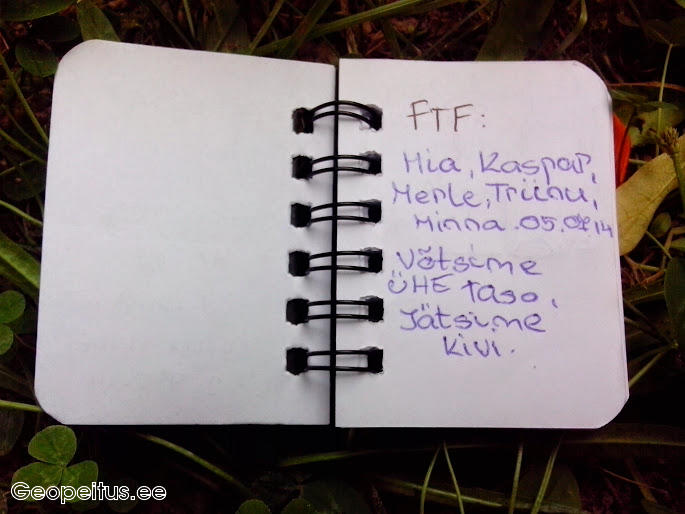 FTF:
Mia, Kaspar,
Merle, Triinu,
Minna. 05.07.14
Võtsime
ÜHE taso,
Jätsime
kivi.
Geopeitus.ee